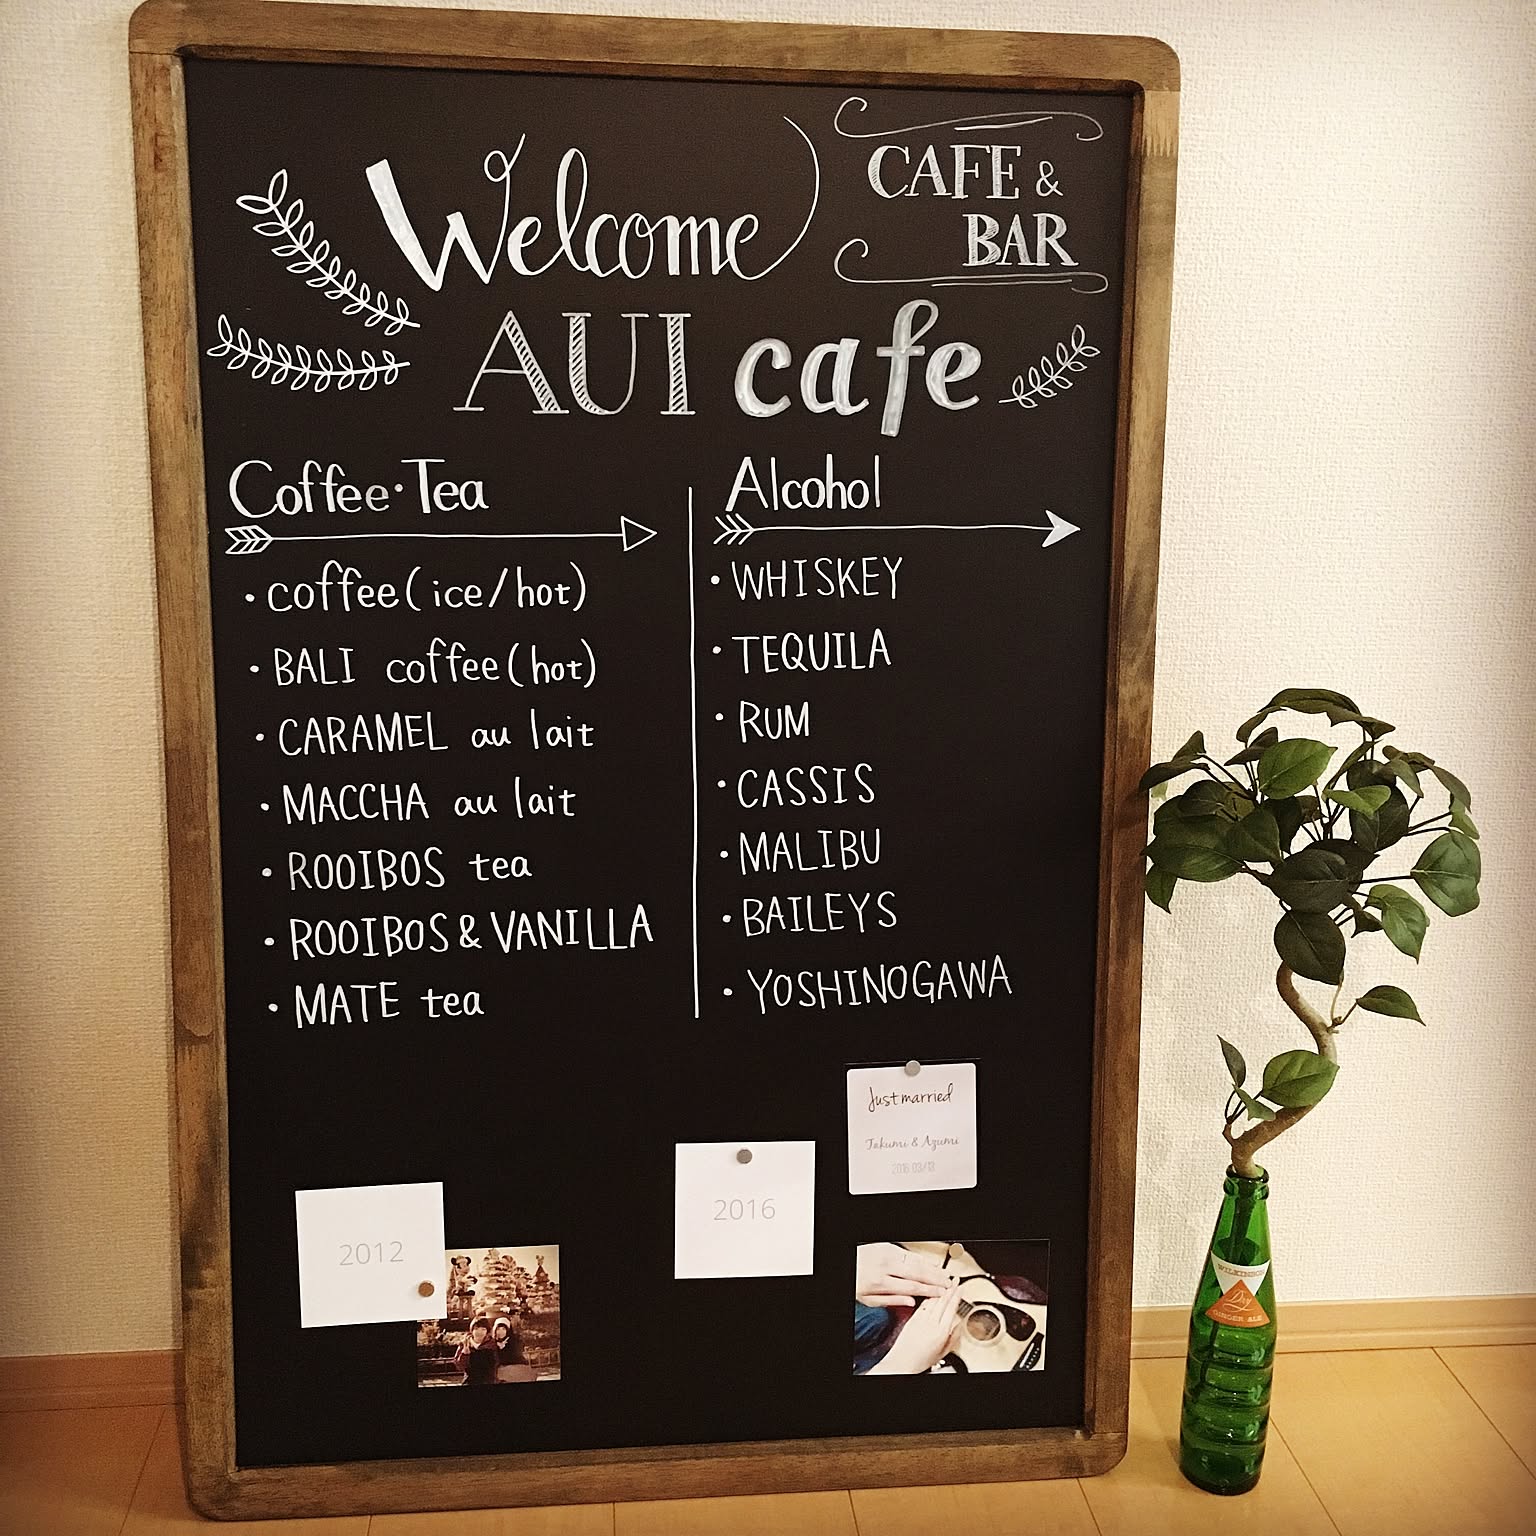 Welcome
CAFE &
BAR
AUI cafe
Coffee・Tea
・coffee(ice/hot)
・BALI coffee(hot)
・CARAMEL au lait
・MACCHA au lait
・ROOIBOS tea
・ROOIBOS & VANILLA
・MATE tea
Alcohol
・WHISKEY
・TEQUILA
・RUM
・CASSIS
・MALIBU
・BAILEYS
・YOSHINOGAWA
Just married
Takumi & Azumi
2016 03/13
2016
2012
WILKINSON
Dry
GINGER ALE